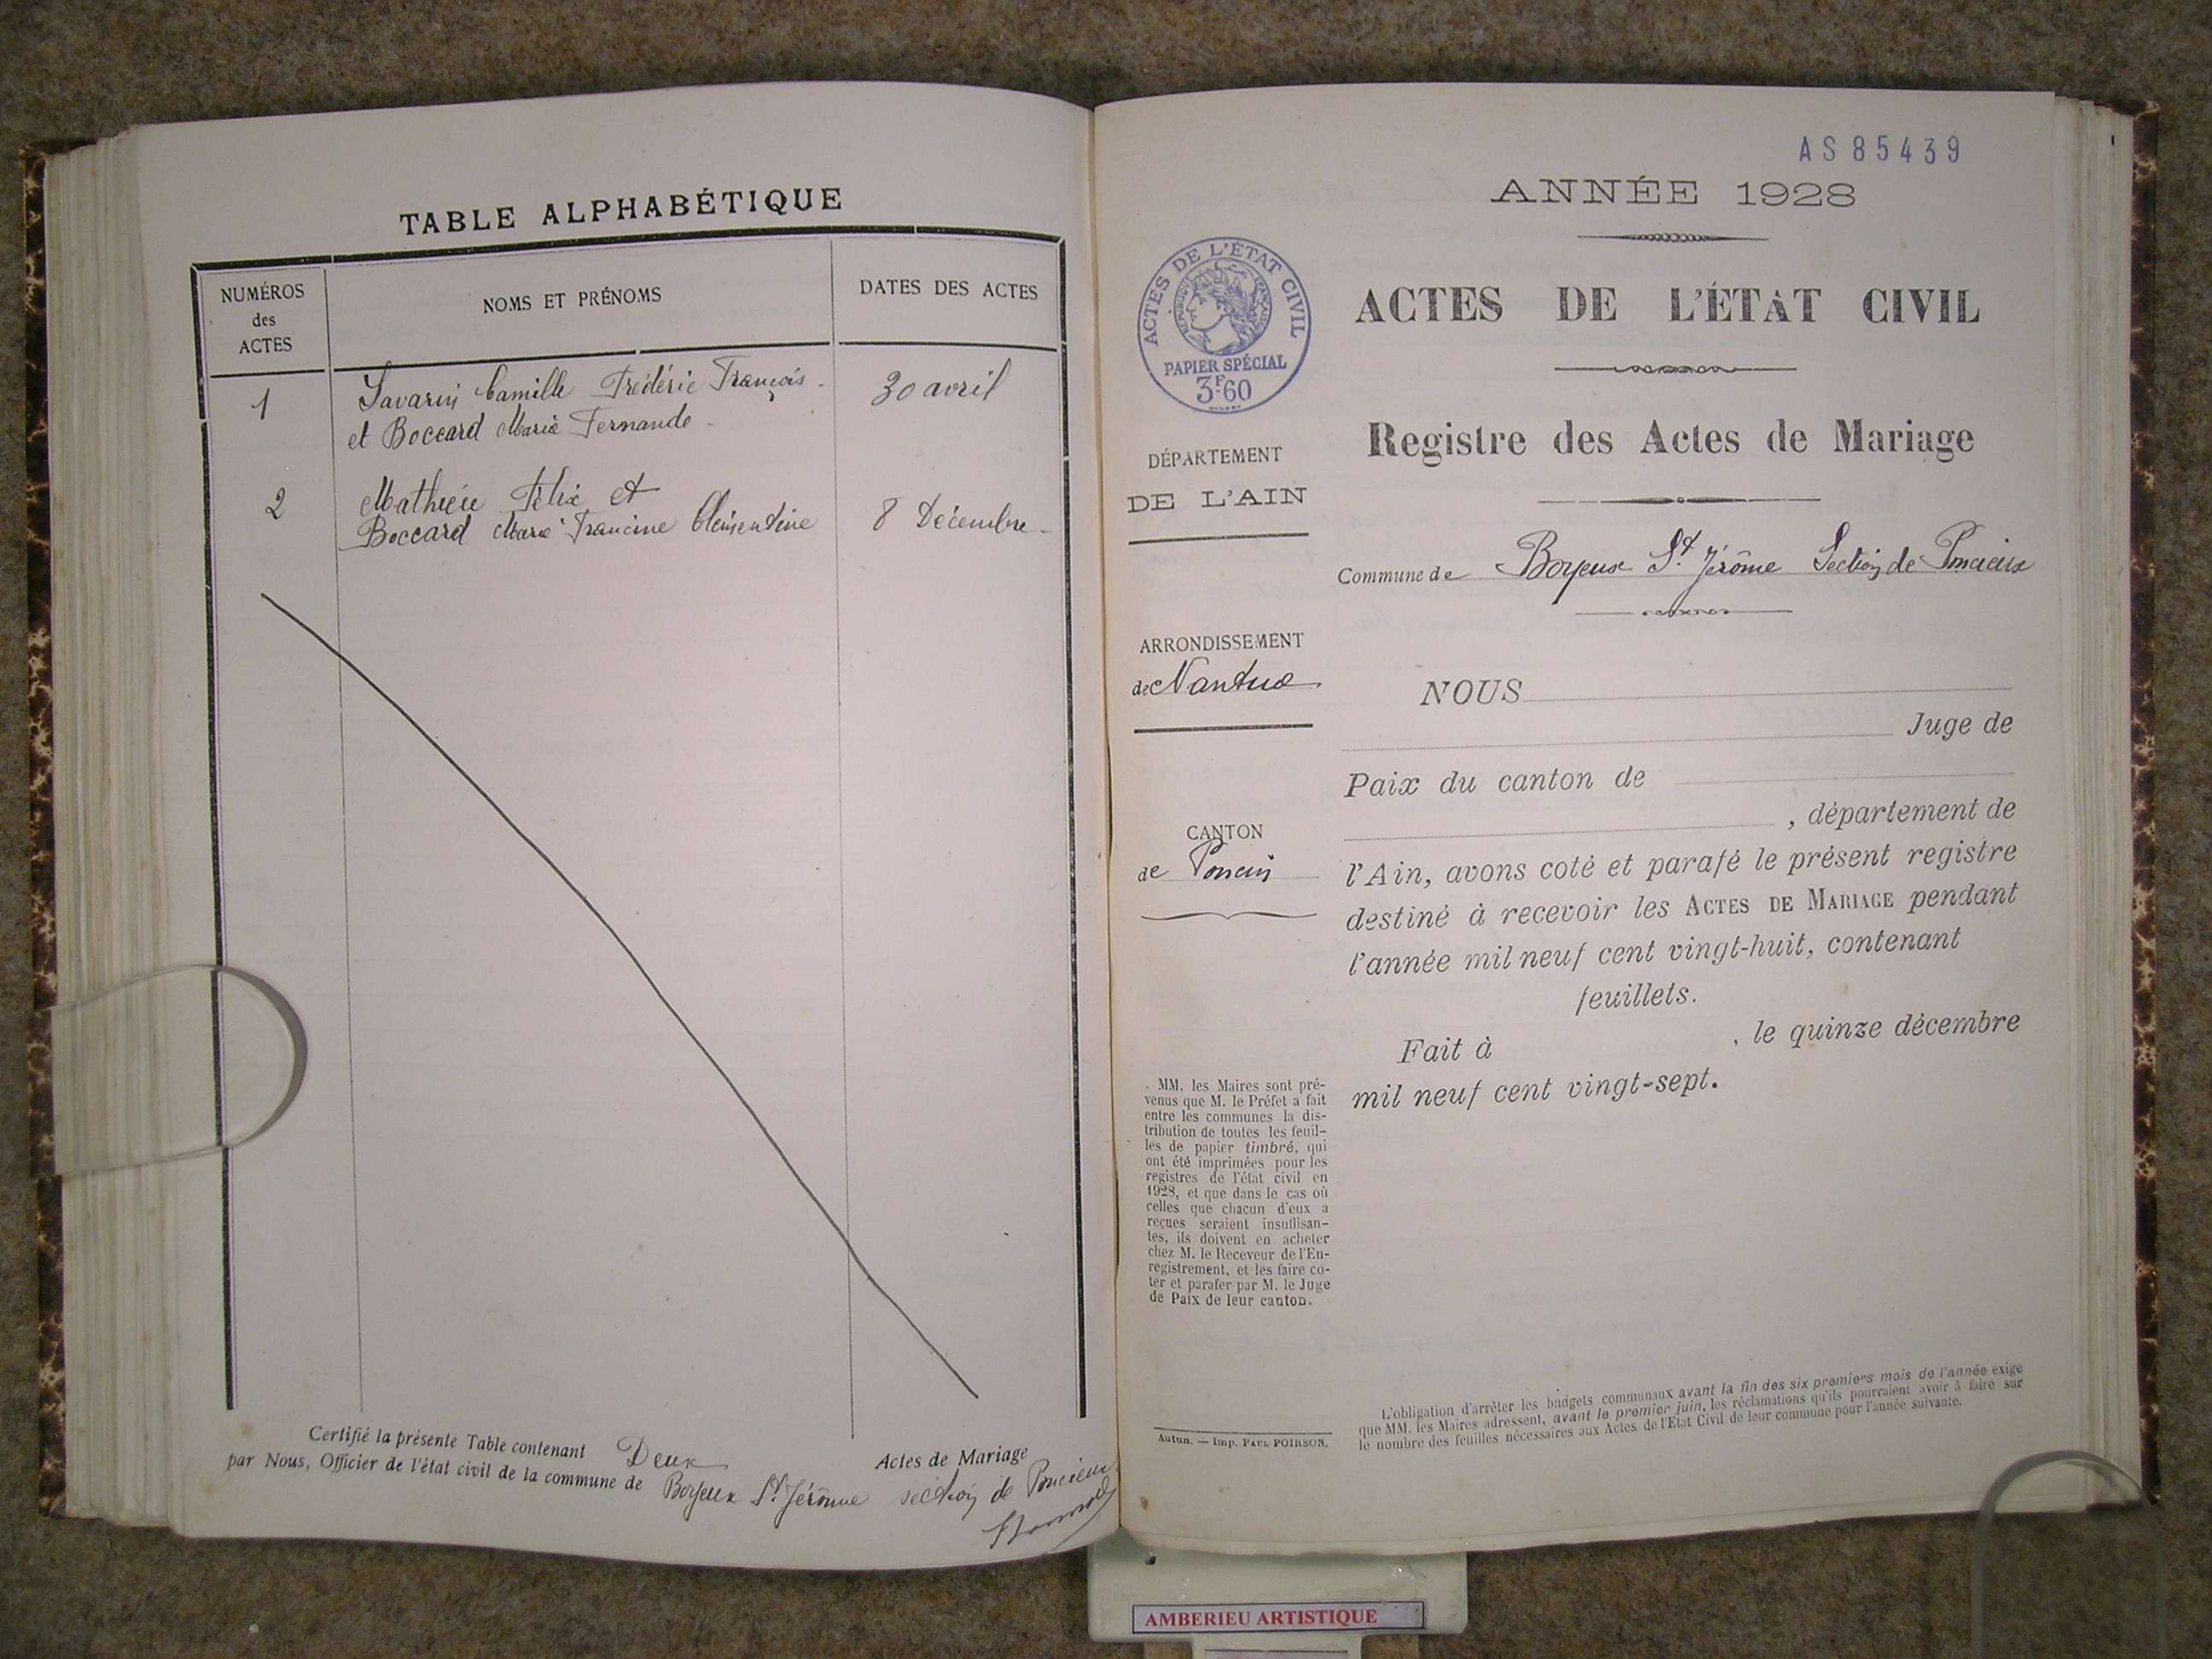 TABLE ALPHABÉTIQUE
NUMÉROS
des
ACTES
NOMS ET PRÉNOMS
DATES DES ACTES
1
Savarin Camille Frédéric François
et Boccard Marie Fernande
30 avril
2
Mathieu Félix et
Boccard Marie Francine Clémentine
8 Décembre
Certifié la présente Table contenant Deux Actes de Mariage
par Nous, Officier de l'état civil de la commune de Boyeux St. Jérôme section de Poncieux
AS 85439
ANNÉE 1928
ACTES DE L'ÉTAT CIVIL
RÉPUBLIQUE FRANÇAISE
PAPIER SPÉCIAL
3F.60
ACTES DE L'ÉTAT CIVIL
Registre des Actes de Mariage
DÉPARTEMENT
DE L'AIN
Commune de Boyeux St. Jérôme Section de Poncieux
ARRONDISSEMENT
de Nantua
CANTON
de Poncin
NOUS
Juge de
Paix du canton de
, département de
l'Ain, avons coté et parafé le présent registre
destiné à recevoir les ACTES DE MARIAGE pendant
l'année mil neuf cent vingt-huit, contenant
feuillets.
Fait à , le quinze décembre
mil neuf cent vingt-sept.
MM. les Maires sont pré-
venus que M. le Préfet a fait
entre les communes la dis-
tribution de toutes les feuil-
les de papier timbré, qui
ont été imprimées pour les
registres de l'état civil en
1928, et que dans le cas où
celles que chacun d'eux a
reçues seraient insuffisan-
tes, ils doivent en acheter
chez M. le Receveur de l'En-
registrement, et les faire co-
ter et parafer par M. le Juge
de Paix de leur canton.
Autun. — Imp. PAUL POIRSON.
L'obligation d'arrêter les budgets communaux avant la fin des six premiers mois de l'année exige
que MM. les Maires adressent, avant le premier juin, les réclamations qu'ils pourraient avoir à faire sur
le nombre des feuilles nécessaires aux Actes de l'Etat Civil de leur commune pour l'année suivante.
AMBERIEU ARTISTIQUE